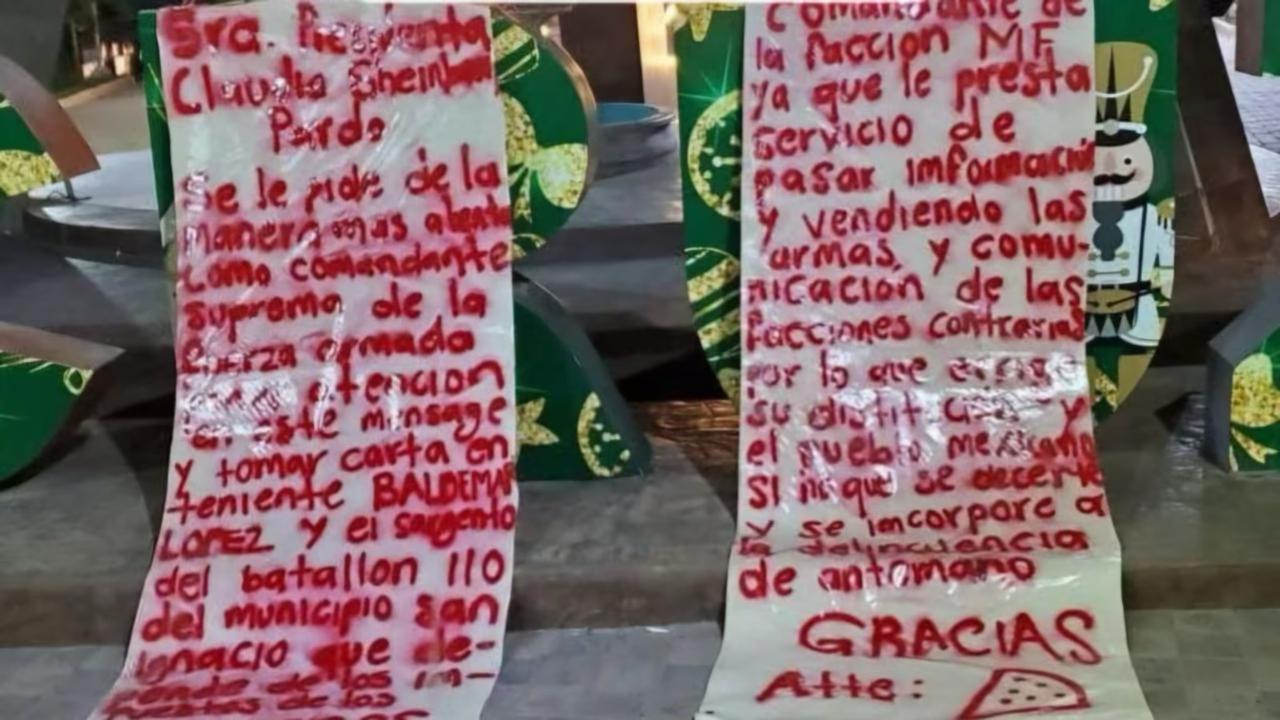 Sra. Presidenta
Claudia Sheinbaum
Pardo
Se le pide de la
manera mas atenta
como comandante
suprema de la
fuerza armada
atencion
en este mensage
y tomar carta en
teniente BALDEMAR
LOPEZ y el sargento
del batallon 110
del municipio san
ignacio que de-
pende de los im-
puestos de los
comandante de
la faccion MF
ya que le presta
servicio de
pasar información
y vendiendo las
armas, y comu-
nicación de las
facciones contrarias
por lo que exsige
su distit y
el pueblo mexicano
SI no que se decerte
y se incorpore a
la delincuencia
de antemano
GRACIAS
Atte: